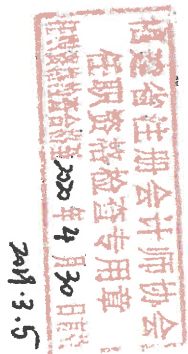 福建省注册会计师协会
任职资格检查专用章
2020年4月30日
2019.3.5